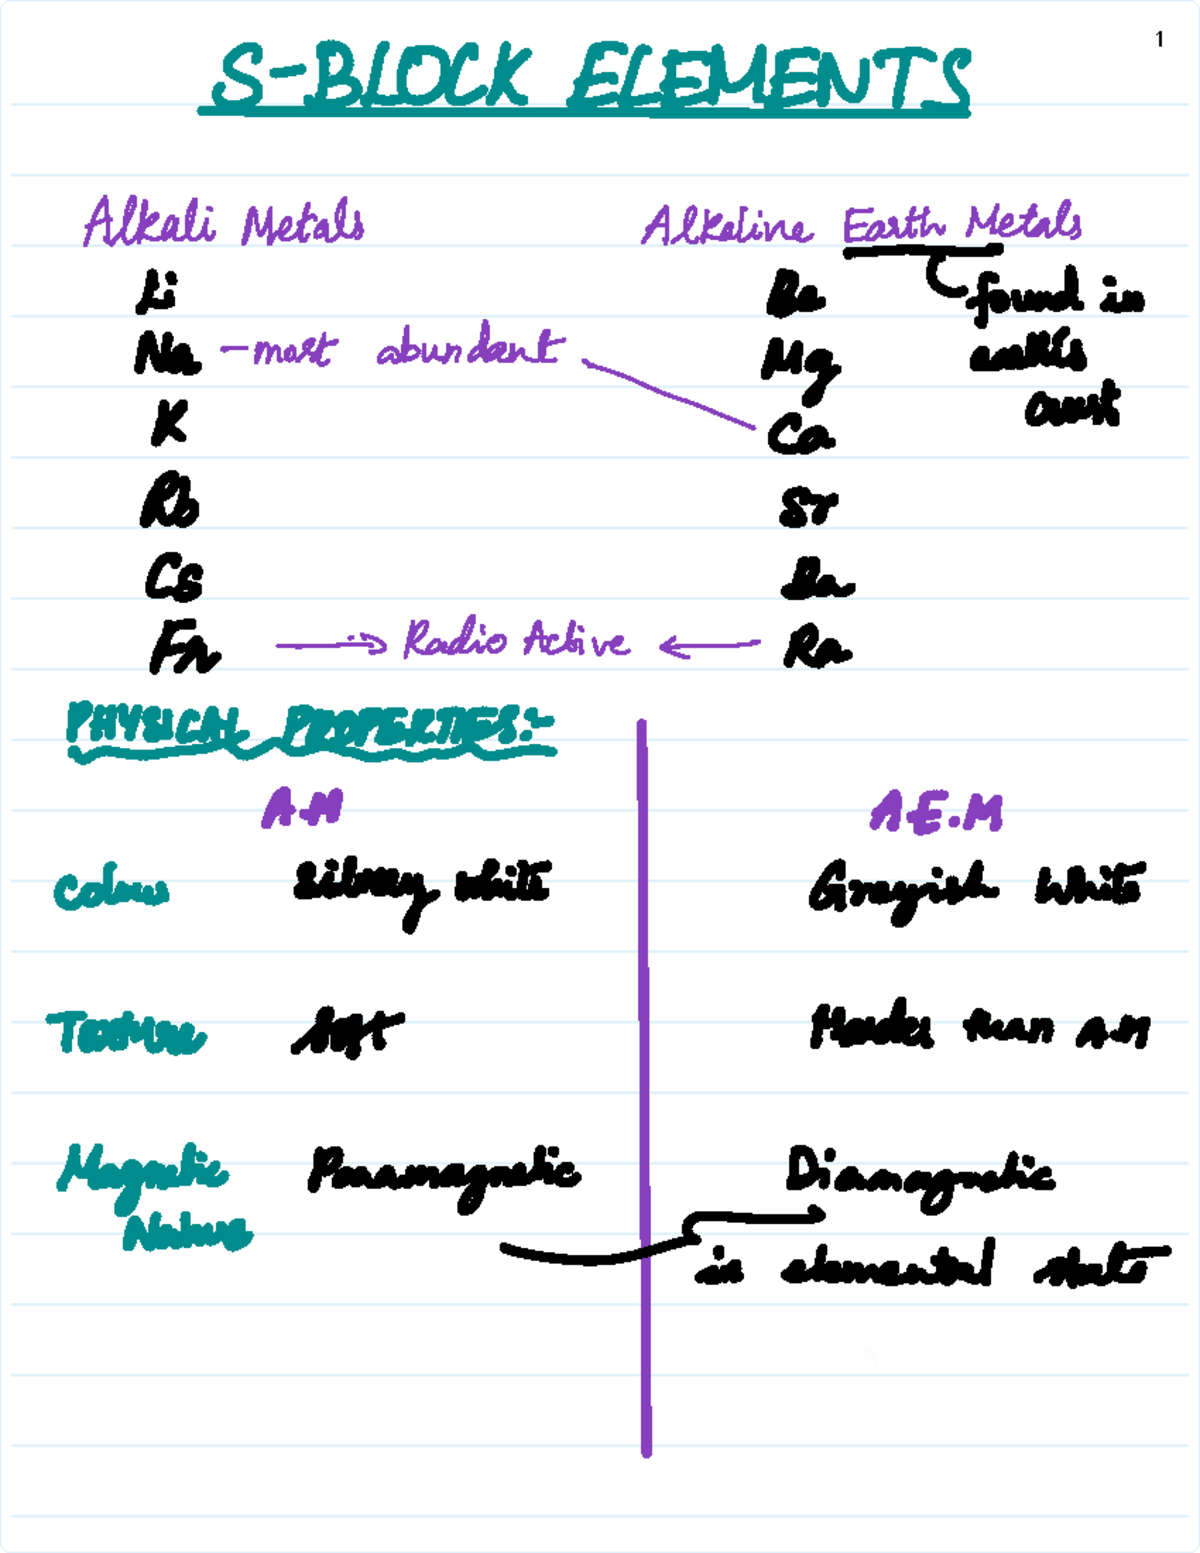 1
S-BLOCK ELEMENTS
Alkali Metals
Alkaline Earth Metals
Li
Be
found in
Na - most abundant
Mg
earth's
crust
K
Ca
Rb
Sr
Cs
Ba
Fr → Radio Active ← Ra
PHYSICAL PROPERTIES:-
A.M
A.E.M
Colour
Silvery white
Greyish White
Texture
Soft
Harder than A.M
Magnetic
Nature
Paramagnetic
Diamagnetic
in elemental state